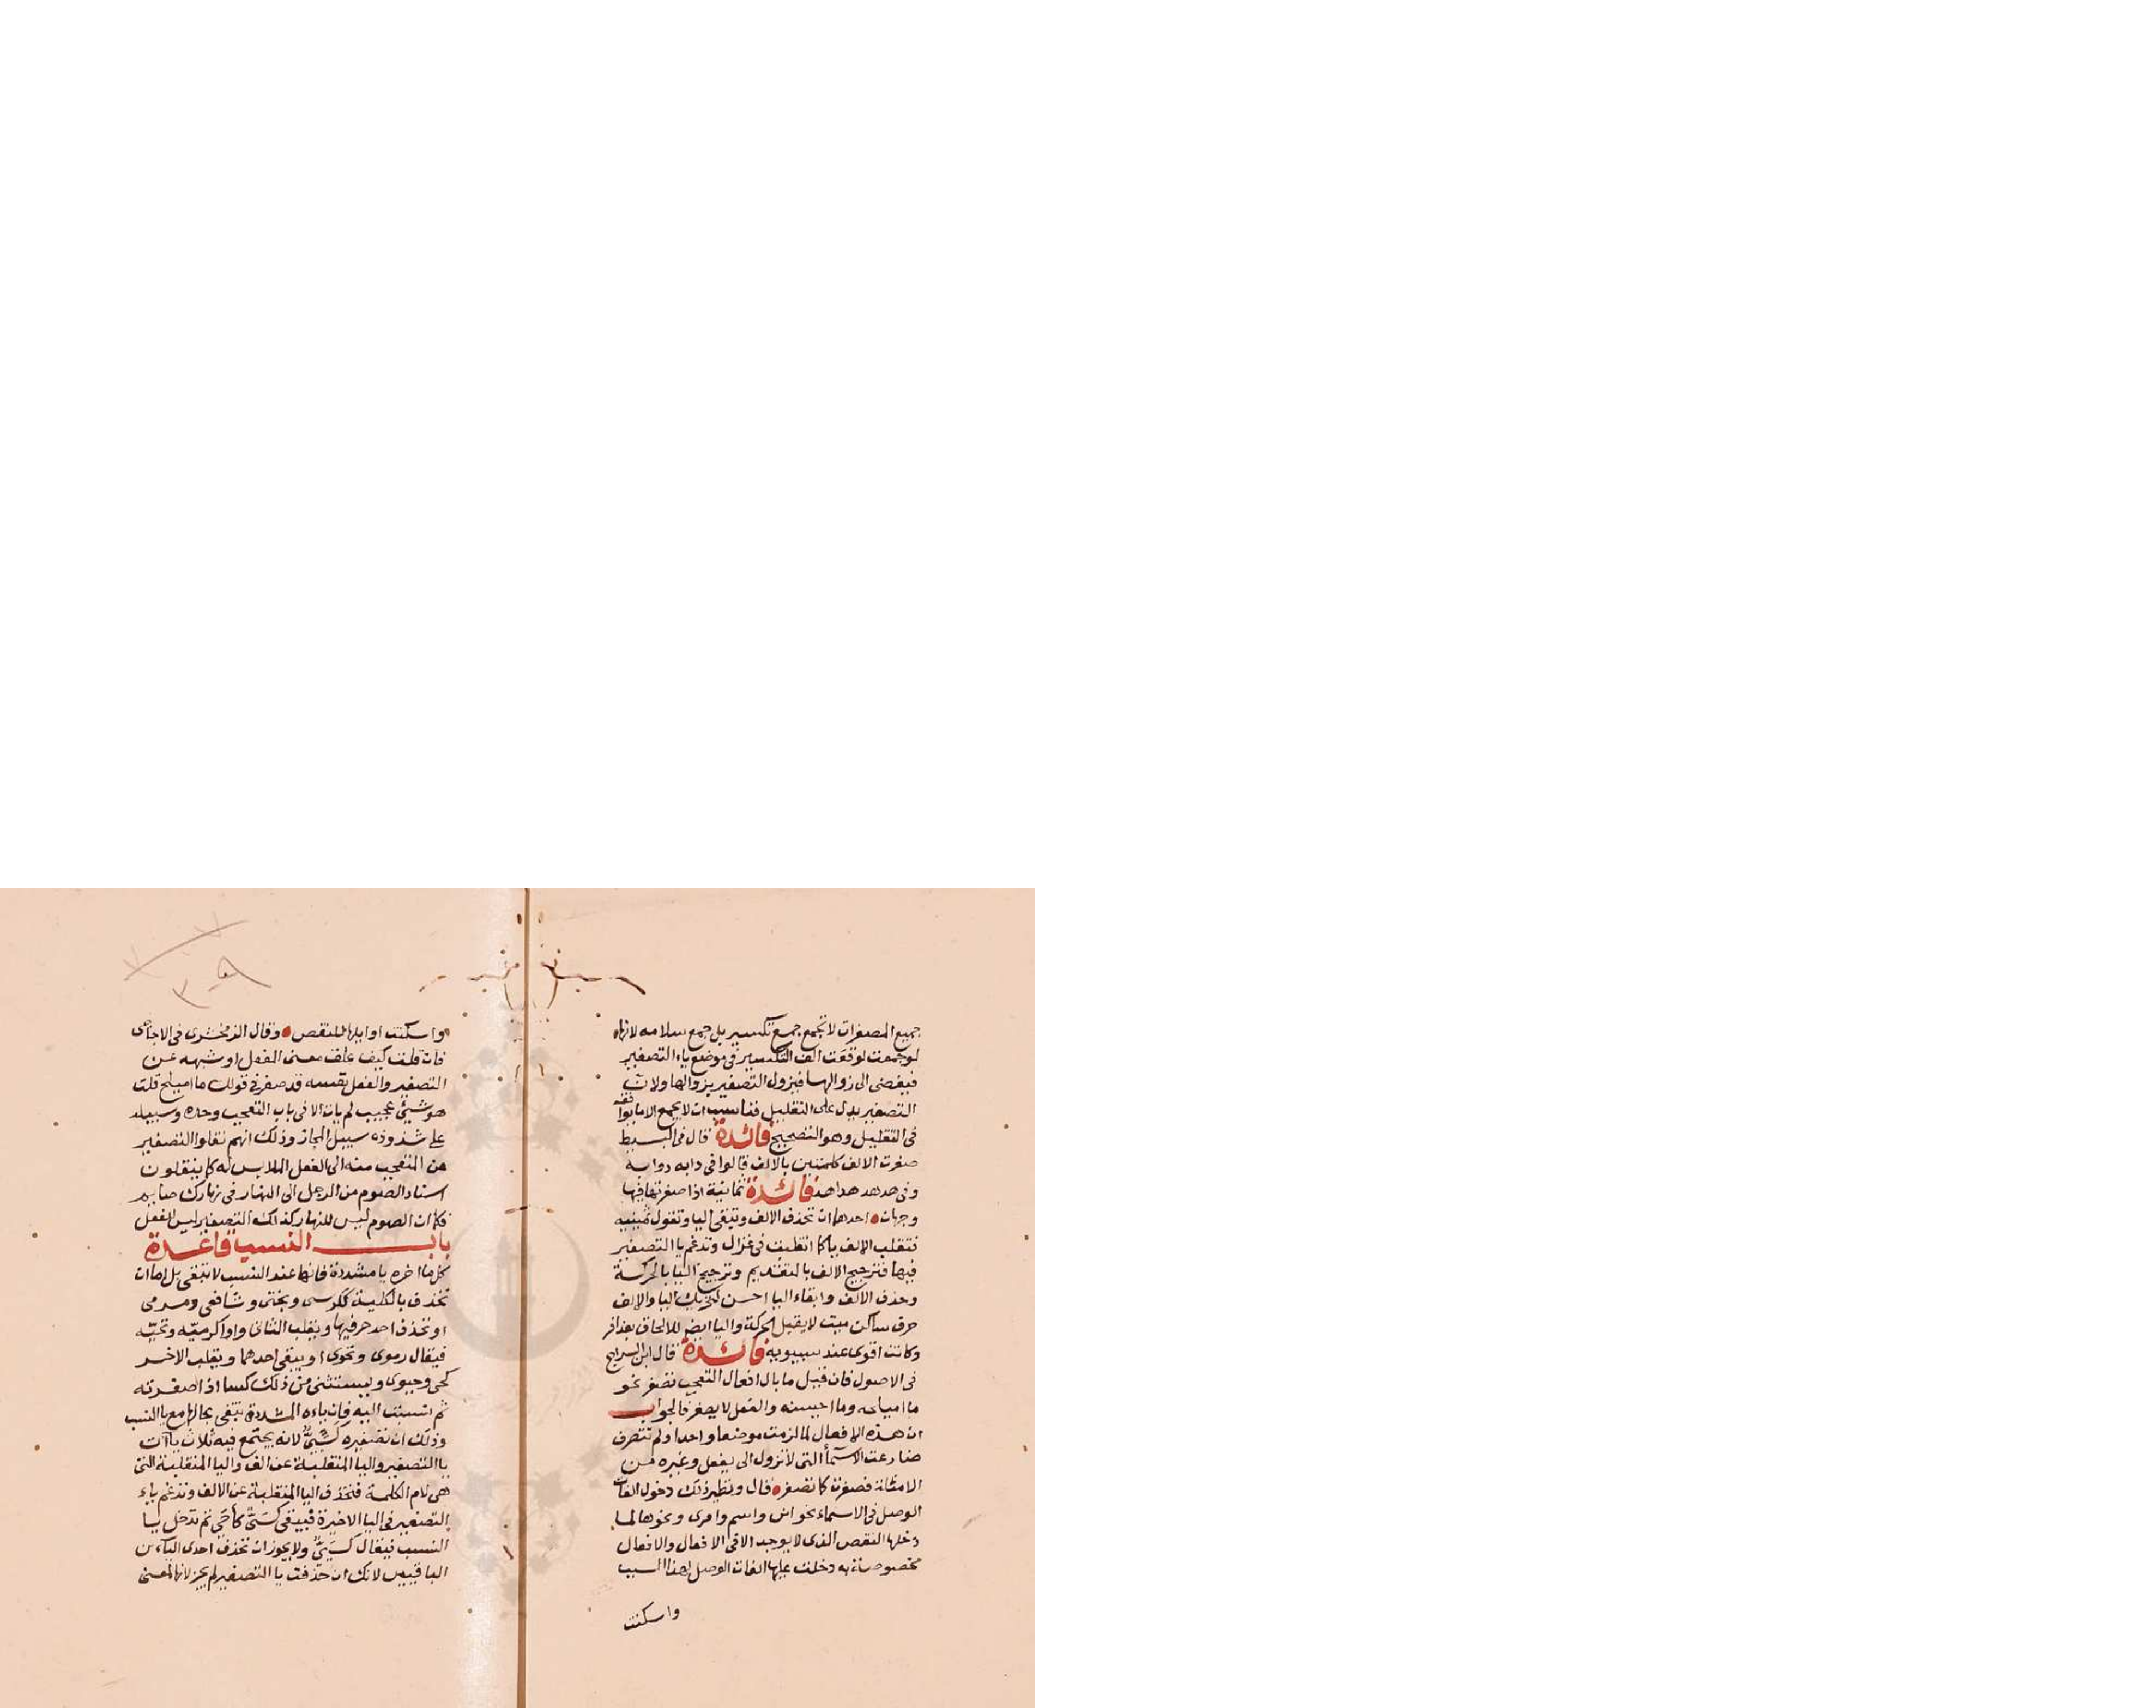 جميع المصغرات لا تجمع جمع تكسير بل جمع سلامه لانها
لو جمعت لوقعت الف التكسير فى موضع ياء التصغير
فيفضى الى زوالها فيزول التصغير بزوالها ولان
التصغير يدل على التقليل فناسب ان لا يجمع الا ما يوافقه
فى التقليل وهو التصحيح فائدة قال فى البسيط
صغرت الالف كلمتين بالالف قالوا فى دابه دوابه
وفى هدهد هداهد فائدة ثمانية اذا صغرتها فيها
وجهان احدهما ان تحذف الالف وتبقى اليا وتقول ثمينيه
فتقلب الالف يا كما انقلبت فى غزال وتدغم يا التصغير
فيها فترجيح الالف بالتقديم وترجيح اليا بالحركة
وحذف الالف وابقاء اليا احسن لتحريك اليا والالف
حرف ساكن ميت لا يقبل الحركة واليا ايضا للالحاق بعذافر
وكانت اقوى عند سيبويه فائدة قال ابن السراج
فى الاصول فان قيل ما بال افعال التعجب تصغر نحو
ما اميلحه وما احيسنه والفعل لا يصغر فالجواب
ان هذه الافعال لما لزمت موضعا واحدا ولم تتصرف
ضارعت الاسمأ التى لا تزول الى يفعل وغيره من
الامثلة فصغرت كما تصغر قال ونظير ذلك دخول الفات
الوصل فى الاسماء نحو ابن واسم وامرى ونحوها لما
دخلها النقص الذى لا يوجد الا فى الافعال والافعال
مخصوصة به دخلت عليها الفات الوصل لهذا السبب
واسكنت
واسكنت اوايلها للنقص وقال الزمخشرى فى الاحاجى
فان قلت كيف عاف معنى الفعل او شبهه عن
التصغير والفعل نفسه قد صغر فى قولك ما اميلح قلت
هو شئ عجيب لم يات الا فى باب التعجب وحده وسبيله
على شذوذه سبيل المجاز وذلك انهم نقلوا التصغير
من المتعجب منه الى الفعل الملابس له كما ينقلون
اسناد الصوم من الرجل الى النهار فى نهارك صايم
فكما ان الصوم ليس للنهار كذلك التصغير ليس للفعل
باب النسب قاعدة
كل ما اخره يا مشددة فانها عند النسب لا تبقى بل اما ان
تحذف بالكلية ككرسى وبختى وشافعى ومرمى
او تحذف احد حرفيها ويقلب الثانى واوا كرميّه وتحيّه
فيقال رموى وتحوى او يبقى احدهما ويقلب الاخر
كحى وحيوى ويستثنى من ذلك كسا اذا صغرته
ثم نسبت اليه فان ياءه المشددة تبقى بحالها مع يا النسب
وذلك ان تصغيره كسيّ لانه يجتمع فيه ثلاث ياآت
يا التصغير واليا المنقلبة عن الف واليا المنقلبة التى
هى لام الكلمة فتحذف اليا المنقلبة عن الالف وتدغم ياء
التصغير فى اليا الاخيرة فيبقى كسىّ كأخىّ ثم تدخل يا
النسب فيقال كسيىّ ولا يجوز ان تحذف احدى اليائين
الباقيين لانك ان حذفت يا التصغير لم يجز لانها لمعنى